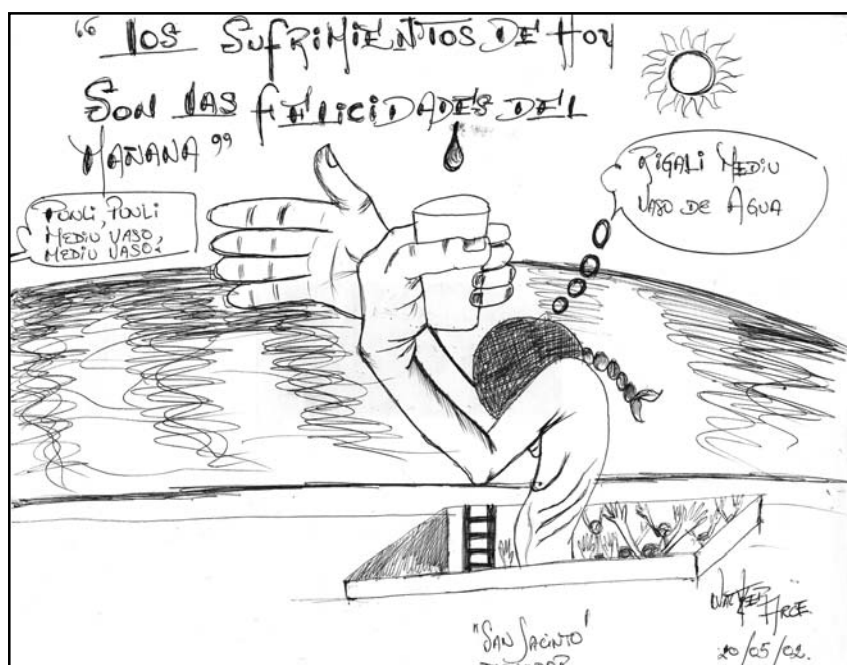 “ LOS SUFRIMIENTOS DE HOY
SON LAS FELICIDADES DEL
MAÑANA ”
PONLI, PONLI
MEDIU VASO,
MEDIU VASO.
RIGALI MEDIU
VASO DE AGUA
"SAN JACINTO"
WALTER ARCE
20/05/02.